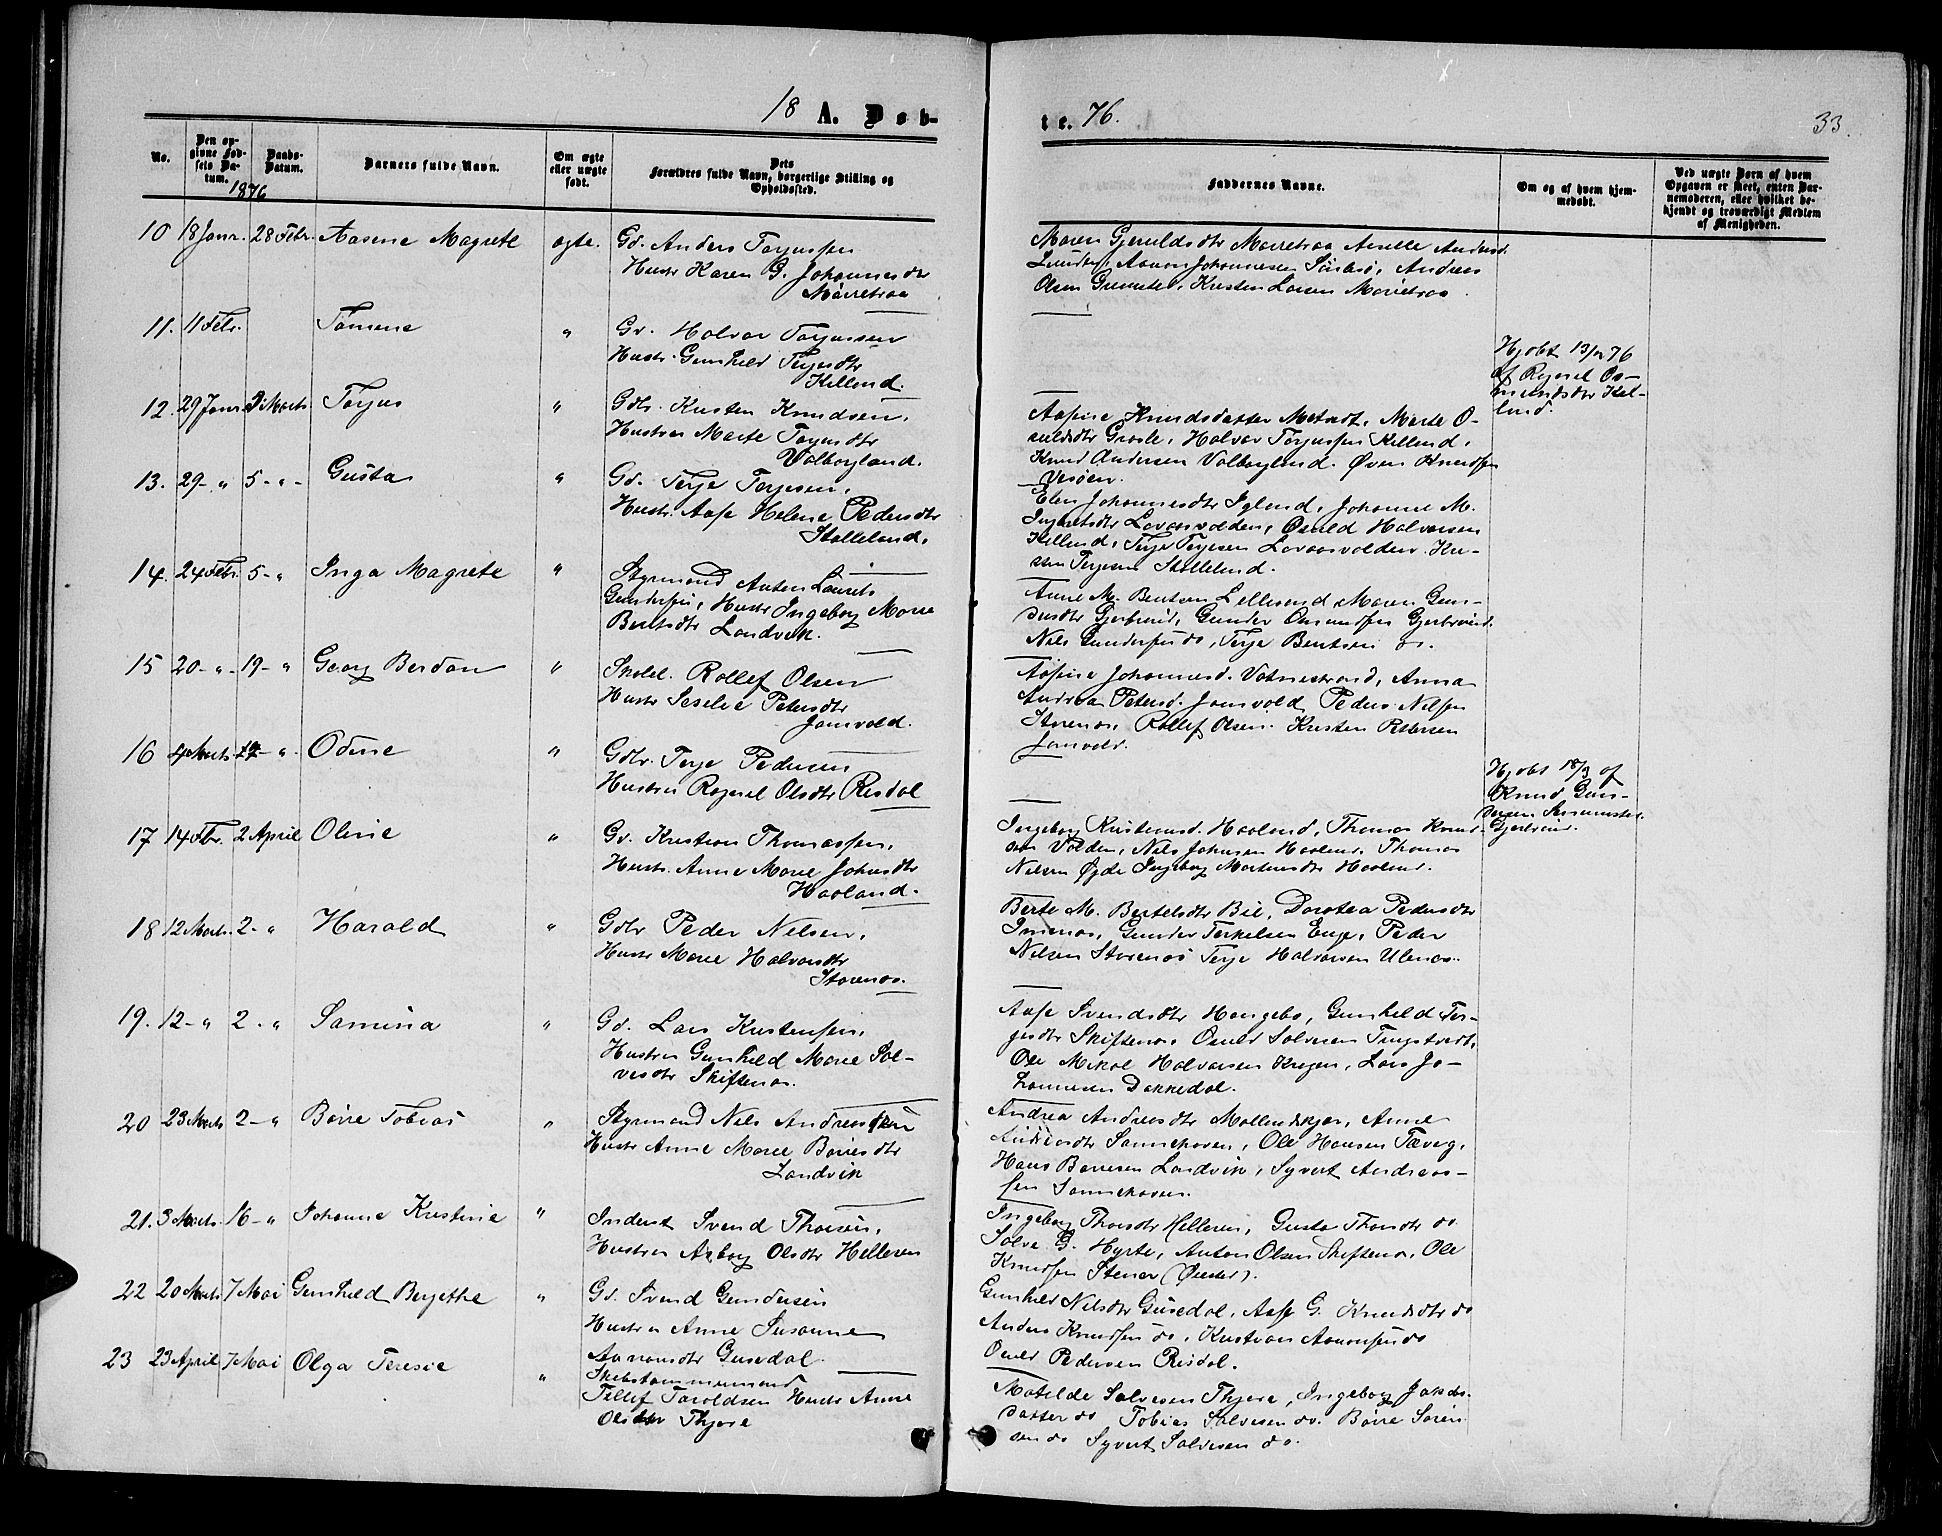 18 A. Døb-
te. 76.
33.
No.
Den op-
givne Fød-
sels Da-
tum.
Daabs-
Datum.
Barnets fulde Navn.
Om ægte
eller uægte
født.
Dets
Forældres fulde Navn, borgerlige Stilling og
Opholdssted.
Faddernes Navne.
Om og af hvem hjem-
medøbt.
Ved uægte Børn af hvem
Opgaven er skeet, enten Bar-
nemoderen, eller hvilket be-
kjendt og troværdigt Medlem
af Menigheden.
1876
10 18 Janr. 28 Febr. Aasene Magrete ægte. Gd. Anders Torjussen
Hustr Karen G. Johannesdtr
Mørretraa
Maren Gjeruldsdtr Mørretraa
Johannesen
Olsen Kristen Larsen Mørretraa
11. 11 Febr. Tomine " Gd. Halvor Torjussen
Hustr. Gunhild Terjesdtr
Kelland.
Hjdbt 13/2 76
af Ragnil Os-
mundsdtr Kel-
land.
12. 29 Janr. Marts Torjus " Gdbr. Kristen Knudsen,
Hustru Marte Torjusdtr
Valborgland.
Aasine Knudsdatter Marte O-
suldsdtr Halvor Torjussen Kelland,
Knud Andersen Valborgland. Øven Knudsen
Vesøen.
13. 29- " 5- " - Gusta " Gd. Terje Terjesen,
Hustr. Aase Helene Pedersdtr
Stalleland.
Elen Johannesdtr Igland, Johanne M.
Lovaasvolden, Osuld Halvorsen
Kelland, Terje Terjesen Lovaasvolden. Kri-
sten Terjesen Stalleland.
14. 24 Febr. 5- " Inga Magrete " Styrmand Anton Laurits
Gundersen, Hustr Ingeborg Marie
Bentsdtr Landvik.
Anne M. Bentsen Lillesand Maren Gun-
dersdtr Gjerbrønd, Gunder Osmundsen Gjerbrønd.
Nils Gundersen do, Terje Bentsen do.
15 20- " - 19- " Georg Berdon " Skolel. Rollef Olsen
Hustr Seselie Petersdtr
Jomvold.
Aasine Johannesd. Vatnestrand, Anna
Andrea Petersd. Jomvold Peder Nilsen
Storenes, Rollef Olsen. Kristen Petersen
Jomvold.
16 4 Marts 19- " Odine " Gdbr. Terje Pedersen
Hustru Ragnil Olsdtr Risdal
Hjdbt 18/3 af
Knud Gun-
dersen
Gjerbrønd.
17 14 Febr. 2 April Oline " Gd. Kristian Thomassen,
Hustr. Anne Marie Johnsdtr
Haaland.
Ingeborg Kristensd. Haaland, Thomas Knud-
sen Volden, Nils Johnsen Haaland. Thomas
Nilsen Øgde Ingeborg Mortensdtr Haaland.
18 12 Marts. 2- " Harald " Gdbr Peder Nilsen,
Hustr Marie Halvorsdtr
Storenes.
Berte M. Bertelsdtr Bie, Dorotea Pedersdtr
Imenes, Gunder Terkelsen Enge, Peder
Nilsen Storenes Terje Halvorsen Ulenes.
19. 12- " 2- " Samina " Gd. Lars Kristensen,
Hustru Gunhild Marie Sal-
vesdtr Skiftenes.
Aase Svendsdtr Haugebo, Gunhild Ter-
jesdtr Skiftenes, Osuld Salvesen Tingstvedt,
Ole Mikal Halvorsen Kragen, Lars Jo-
hannesen Dokkedal.
20 23 Marts 2- " Børre Tobias " Styrmand Nils Andreassen
Hustr Anne Marie Børresdtr
Landvik
Andrea Andreasdtr Mollandskjær, Anne
Andreasdtr Sømhoven, Ole Hansen Tæveg,
Hans Børresen Landvik, Syvert Andreas-
sen
21. 3 Marts. 16- " Johanne Kristine " Inderst Svend Thorsen,
Hustru Aaborg Olsdtr Helleren
Ingeborg Thorsdtr Helleren, Gusta Thorsdtr do.
Salve G. Hyrte, Anton Olsen Skiftenes, Ole
Knudsen Stener (Øiestd).
22 20 Marts 7 Mai Gunhild Berjethe " Gd. Svend Gundersen
Hustru Anne Susanne
Aanonsdtr Gusedal.
Gunhild Nilsdtr Gusedal, Aase G. Knudsdtr do
Anders Knudsen do, Kristian Aanonsen do
Osuld Pedersen Risdal.
23 23 April 7 Mai Olga Teresie " Skibstømmermand
Tellef Taraldsen Hustr Anne
Olsdtr Thjøre
Matilde Salvesen Thjøre, Ingeborg Jakobs-
datter do Tobias Salvesen do. Børre Søren-
sen do Syvert Salvesen do.